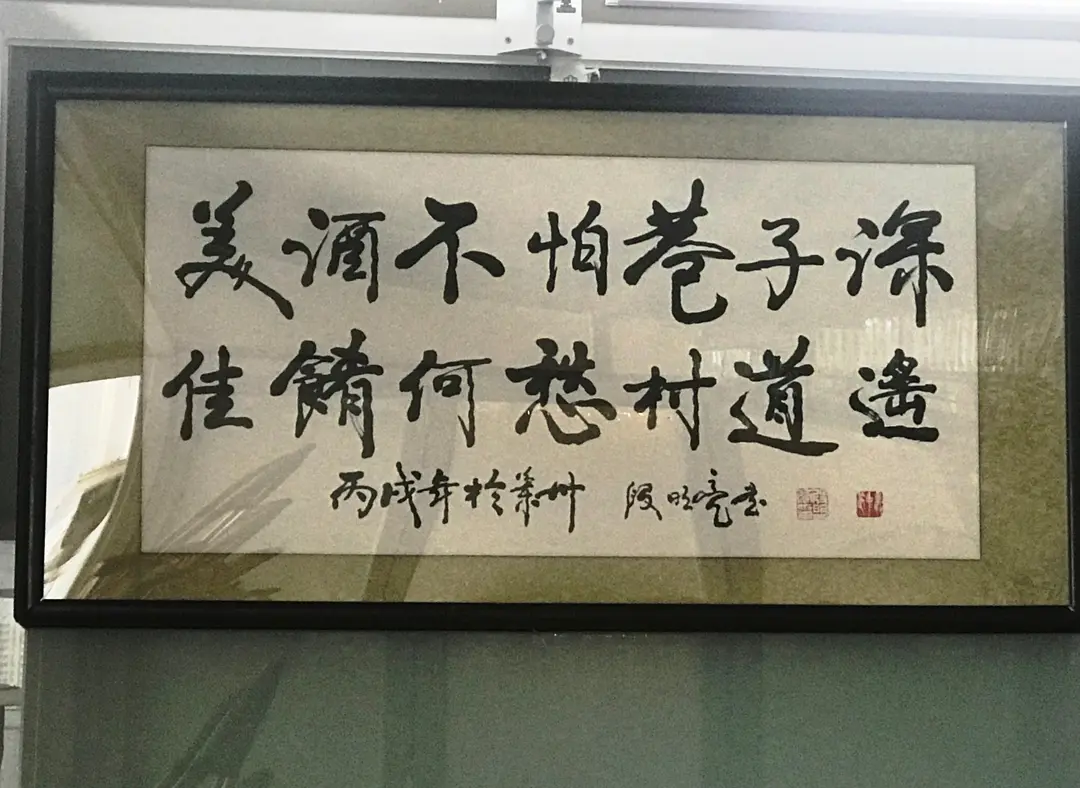 美酒不怕巷子深
佳餚何愁村道遙
丙戌年於蘭州 段旺亮书